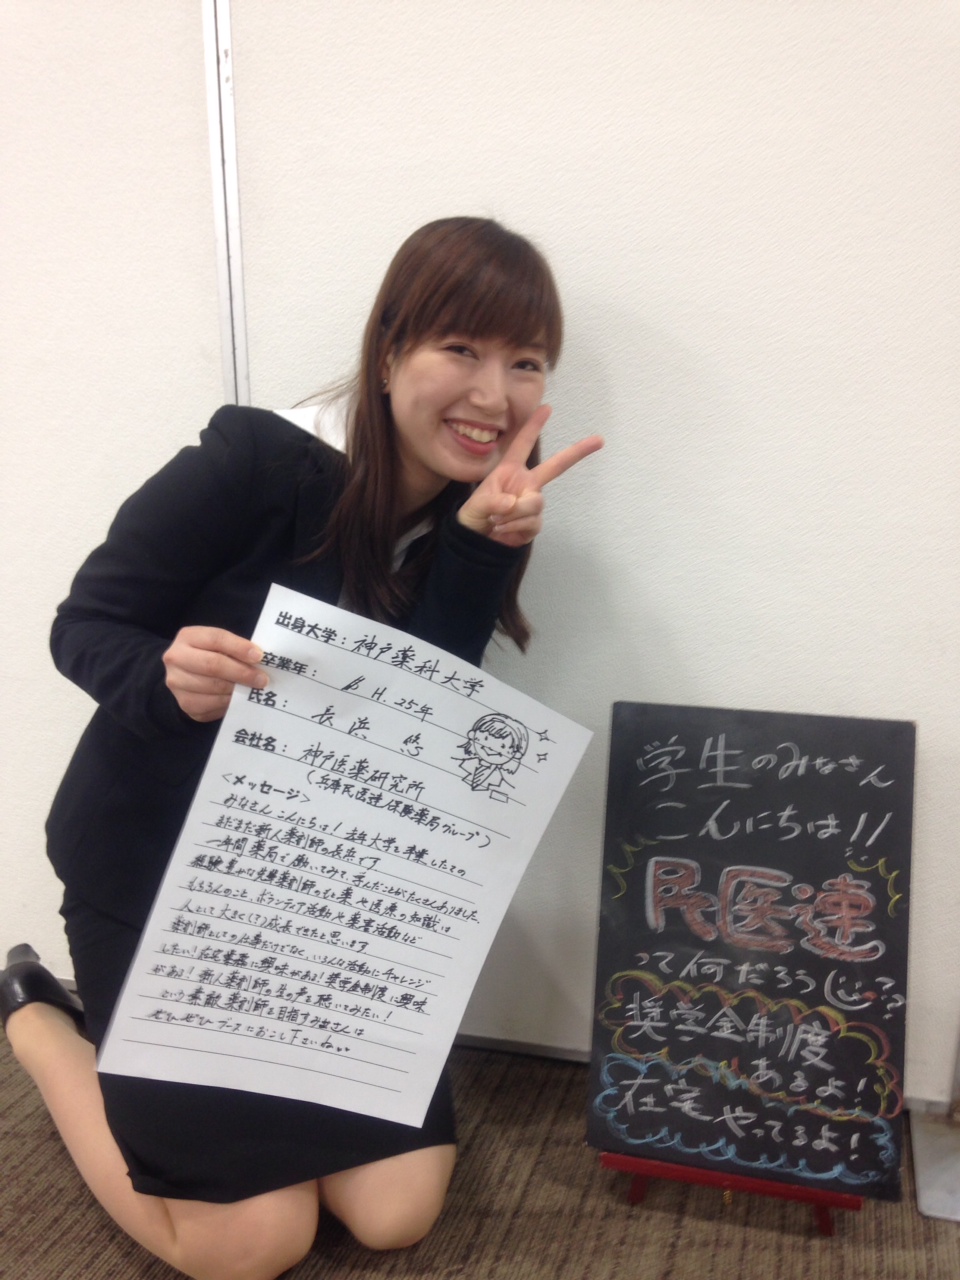 出身大学： 神戸薬科大学
卒業年： H. 25年
氏名： 長浜 悠
会社名： 神戸医薬研究所
（兵庫民医連保険薬局グループ）
＜メッセージ＞
みなさんこんにちは！去年大学を卒業したての
まだまだ新人薬剤師の長浜です
一年間薬局で働いてみて、学んだことがたくさんありました。
経験豊かな先輩薬剤師のもと薬や医療の知識は
もちろんのこと、ボランティア活動や薬害活動など
人として大きく(？)成長できたと思います
薬剤師としての仕事だけでなく、いろんな活動にチャレンジ
したい！在宅業務に興味がある！奨学金制度に興味
がある！新人薬剤師の生の声を聴いてみたい！
という素敵な薬剤師を目指すみなさんは
ぜひぜひブースにおこし下さいね
学生のみなさん
こんにちは!!
民医連
って何だろう???
奨学金制度
あるよ！
在宅やってるよ！